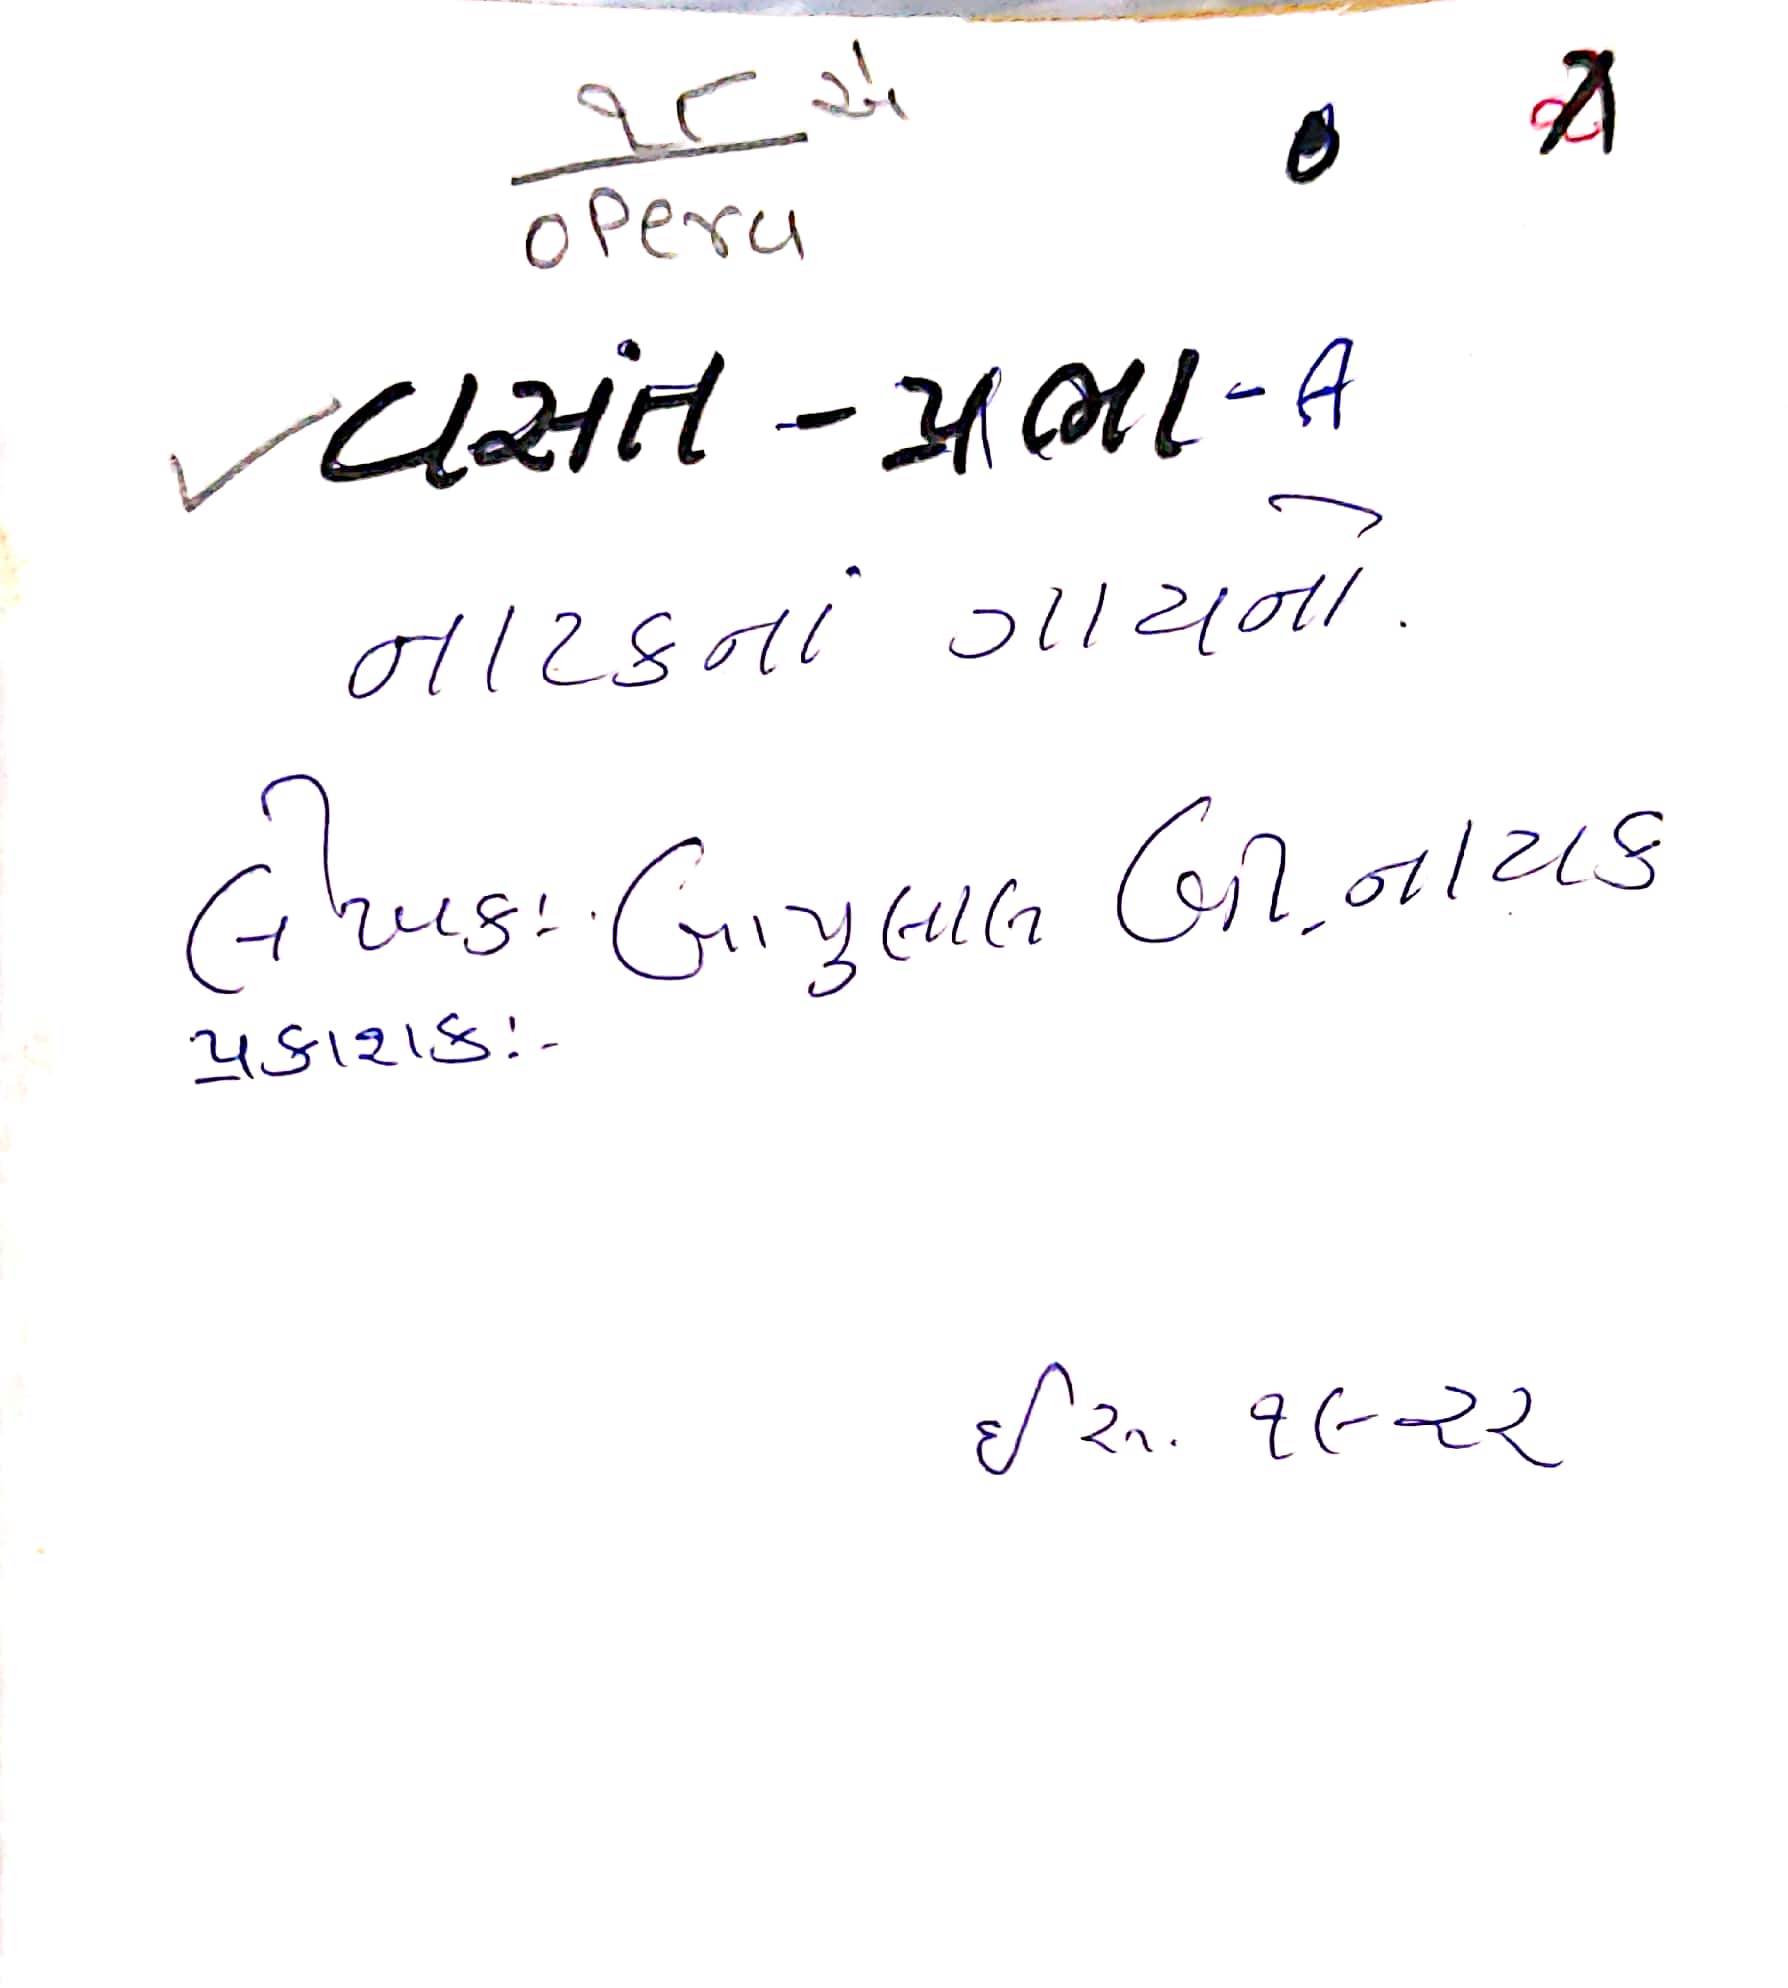 ૧૮ અ
opera
વસંત - પ્રભા - A
નાટકનાં ગાયનો.
લેખક:- બાપુલાલ બી. નાયક
પ્રકાશક:-
ઈ.સ. ૧૯૨૨